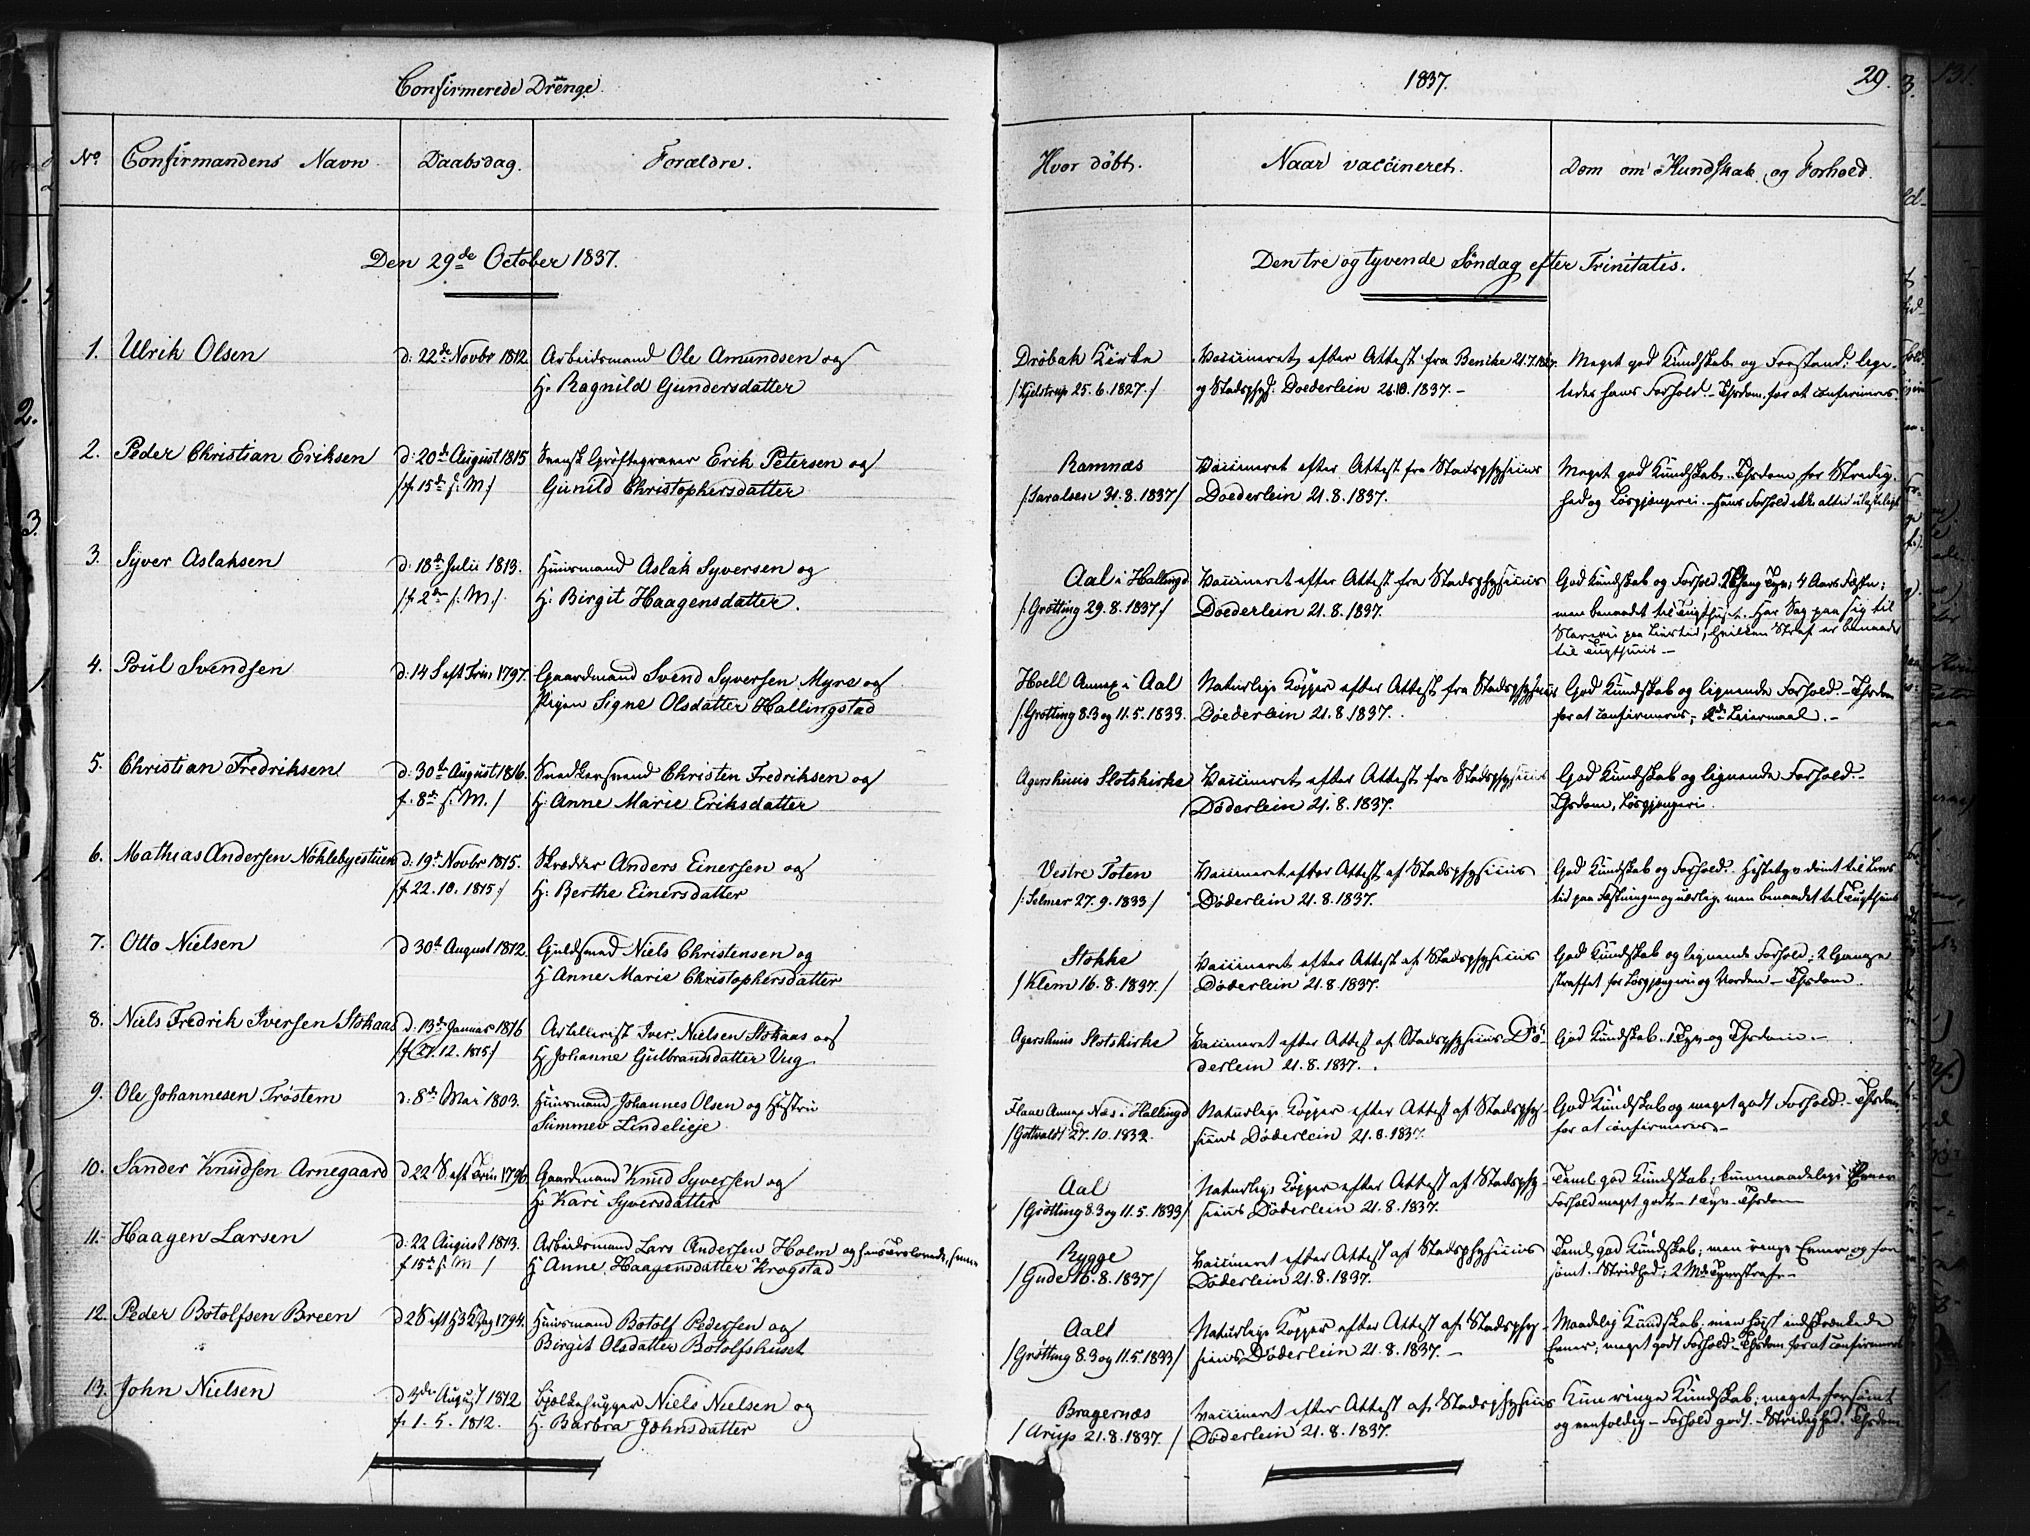 Confirmerede Drenge.
1837.
29.
No. Confirmandens Navn Daabsdag. Forældre. Hvor döbt. Naar vaccineret. Dom om Kundskab og Forhold.
Den 29de October 1837. Den tre og tyvende Söndag efter Trinitatis.
1. Ulrik Olsen d: 22de Novbr 1812. Arbeidsmand Ole Amundsen og Dröbak Kirke Vaccineret efter Attest fra Benike 21.7.1827. Meget god Kundskab og Forstand; lige-
H. Ragnild Gundersdatter /:Kjelstrup 25.6.1827:/ og Stadsphys: Doederlein 1837.- ledes hans Forhold.- Ihrdom. for at confirmeres.
2. Peder Christian Eriksen d: 20de August 1815 Svensk Gröftegraver Erik Petersen og Ramnæs Vaccineret efter Attest fra Stadsphysicus Meget god Kundskab. for Stridig-
/f. 15de s: M:/ Gunild Christophersdatter /:Saralsen 31.8.1837/ Doederlein 21.8.1837. hed og Løsgjængeri.- Hans Forhold ikke altid ulasteligt
3. Syver Aslaksen d: 18de Julii 1813. Huusmand Aslak Syversen og Aal i Hallingd Vaccineret efter Attest fra Stadsphysicus God Kundskab og Forhold. Gang Tyv; 4 Aars Fæstn;
/f 2den s: M:/ H. Birgit Haagensdatter. /:Grötting 29.8.1837:/ Doederlein 21.8.1837. men benaadet til Tugthuset. Har Sag paa sig til
Slaveri paa Livstid; hvilken Straf er benaadet
til Tugthuus-
4. Poul Svendsen d: 14 S eft Trin 1797. Gaardmand Svend Syversen Myre og Hoell Annex i Aal Naturlige Kopper efter Attest fra Stadsphysicus God Kundskab og lignende Forhold.
Pigen Signe Olsdatter Hallingstad /:Grötting 8.3 og 11.5.1833. Döederlein 21.8.1837. for at confirmeres; 2de Leiermaal.-
5. Christian Fredriksen d: 30te August 1816. Snedkersvend Christen Fredriksen og Agershuus Slotskirke Vaccineret efter Attest fra Stadsphysicus God Kundskab og lignende Forhold.-
f. 8de s: M./ H: Anne Marie Eriksdatter Döderlein 21.8.1837. Løsgjængeri.
6. Mathias Andersen Nöklebyestuen d: 19de Novbr 1815. Skrædder Anders Einersen og Vestre Toten Vaccineret efter Attest af Stadsphysicus God Kundskab og Forhold.- Hestetyv dömt til Livs
/f 22.10.1815:/ H: Berthe Einersdatter /:Selmer 27.9.1833/ Döderlein 21.8.1837. tid paa Fæstningen men benaadet til Tugthuus
7. Otto Nielsen d 30te August 1812. Guldsmed Niels Christensen og Stokke Vaccineret efter Attest af Stadsphysicus God Kundskab og lignende Forhold; 2 Gange
H Anne Marie Christophersdatter /Klem 16.8.1837./ Döderlein 21.8.1837. straffet for Løsgjængeri og
8. Niels Fredrik Iversen Stokaas d: 13de Januar 1816 Artillerist Iver Nielsen Stokaas og Agershuus Slotskirke Vaccineret efter Attest af Stadsphysicus Dö- God Kundskab. 1 Tyv og
/f 27.12.1815/ H Johanne Gulbrandsdatter Vug derlein 21.8.1837.
9. Ole Johannesen Tröstem d: 8de Mai 1803. Huusmand Johannes Olsen og Hustru Flaae Annex Næs i Hallingd Naturlige Kopper efter Attest af Stadsphy- God Kundskab og meget godt Forhold.-
Sünnev Lindelieje /Gottvaldt 27.10.1832. sicus Döderlein 21.8.1837. for at confirmeres-
10. Sander Knudsen Arnegaard d 22 S eft Trin 1796. Gaardmand Knud Syversen og Aal Naturlige Kopper efter Attest af Stadsphy- Teml god Kundskab;
H. Kari Syversdatter /Grötting 8.3 og 11.5.1833/ sicus Döderlein 21.8.1837. Forhold meget godt. 1 Tyv.
11. Haagen Larsen d: 22 August 1813. Arbeidsmand Lars Andersen Holm og hans Rygge Vaccineret efter Attest af Stadsphysicus Teml god Kundskab; men ringe Evner og for
f 15de s: M / H Anne Haagensdatter Krogstad /Gude 16.8.1837/ Döderlein 21.8.1837. sömt.
12. Peder Botolfsen Breen d 2 S eft H3K Dag 1794. Huusmand Botolf Pedersen og Aalt Naturlige Kopper efter Attest af Stadsphy- Maadelig Kundskab, men höist indskrænkede
Birgit Olsdatter Botolfshuset /Grötting 8.3 og 11.5.1833/ sicus Döderlein 21.8.1837.- Evner; meget godt Forhold. for at confirmeres
13. John Nielsen d August 1812 Bjelkehugger Niels Nielsen og Bragernæs Vaccineret efter Attest af Stadsphysicus Kun ringe Kundskab; meget forsömt
f. 1.5.1812. H. Barbra Johnsdatter /Arup 21.8.1837./ Döderlein 21.8.1837. og eenfoldig- Forhold godt. Stridighed.